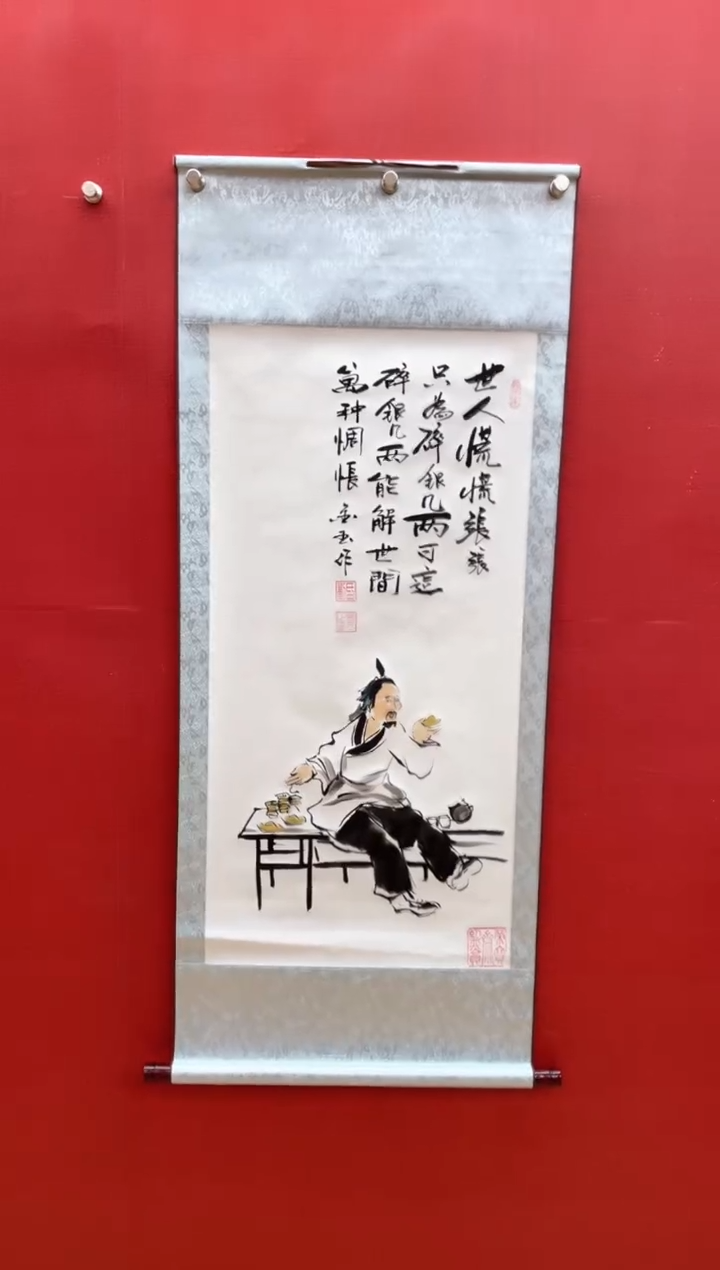 世人慌慌張張
只為碎銀几两可這
碎銀几两能解世間
萬种惆悵 金玉作